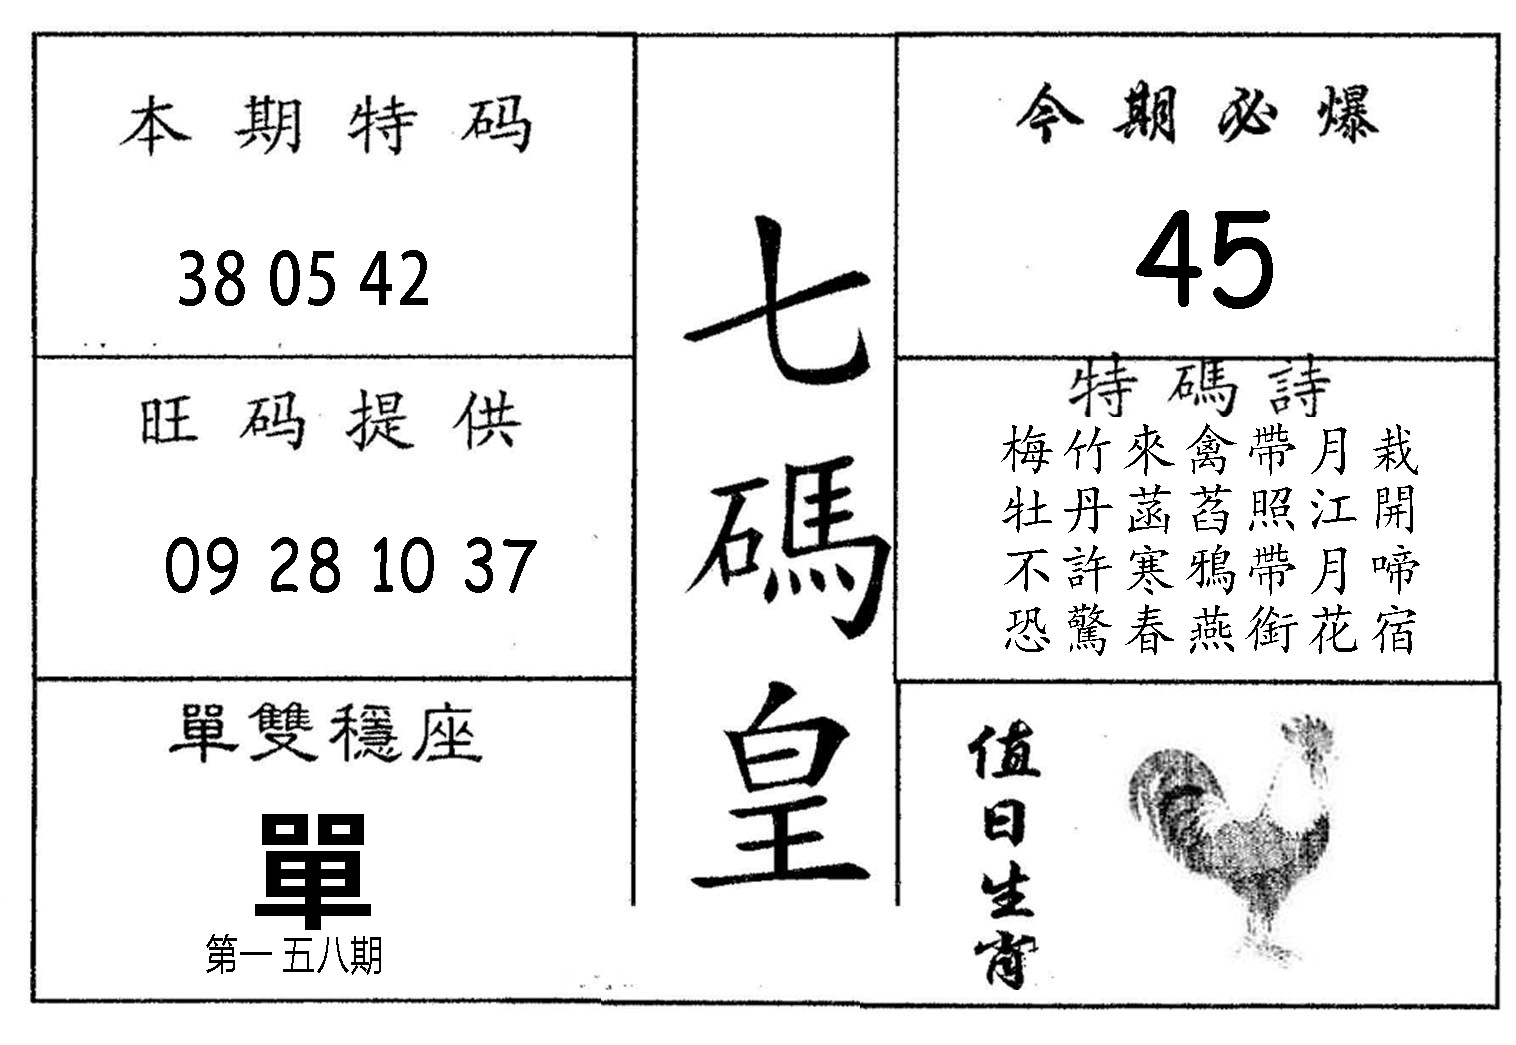 本期特码
38 05 42
旺码提供
09 28 10 37
單雙穩座
單
第一五八期
七碼皇
今期必爆
45
特碼詩
梅竹來禽帶月栽
牡丹菡萏照江開
不許寒鴉帶月啼
恐驚春燕銜花宿
值日生肖